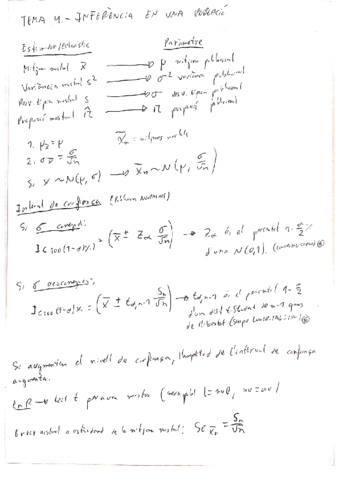 TEMA 4 - INFERÈNCIA EN UNA POBLACIÓ
Estimador/Estadístic Paràmetre
Mitjana mostral x̄ → μ mitjana poblacional
Variància mostral s² → σ² variància poblacional
Desv. típica mostral s → σ desv. típica poblacional
Proporció mostral π̂ → π proporció poblacional
1. μx̄ = μ
2. σx̄ = σ/√n
Si X ~ N(μ, σ) → x̄n ~ N(μ, σ/√n)
Interval de confiança
Si σ coneguda:
IC 100(1-α)% = (x̄ ± Zα σ/√n) → Zα és el percentil 1-α/2 %
d'una N(0,1).
Si σ desconeguda:
IC 100(1-α)% = (x̄ ± tα,n-1 Sn/√n) → tα,n-1 és el percentil 1-α/2
d'una dist t-Student de n-1 graus
de llibertat
Si augmentem el nivell de confiança, l'amplitud de l'interval de confiança
augmenta.
En R → test t per una mostra
Error mostral o estàndard de la mitjana mostral: SE x̄n = Sn/√n